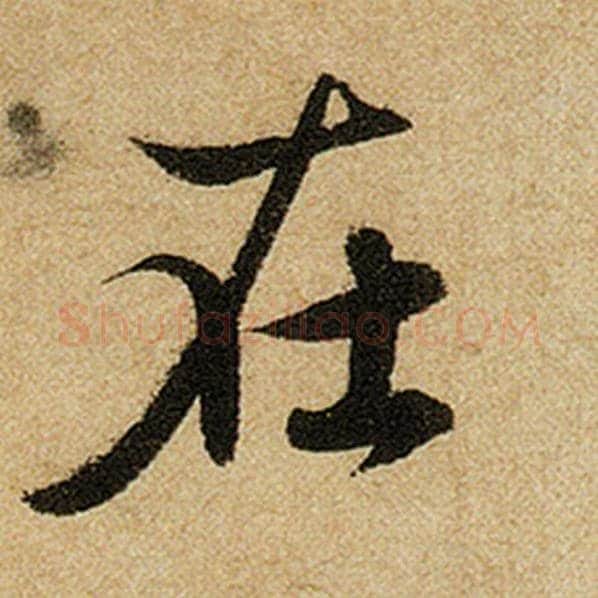 在
Shufaziliao.COM